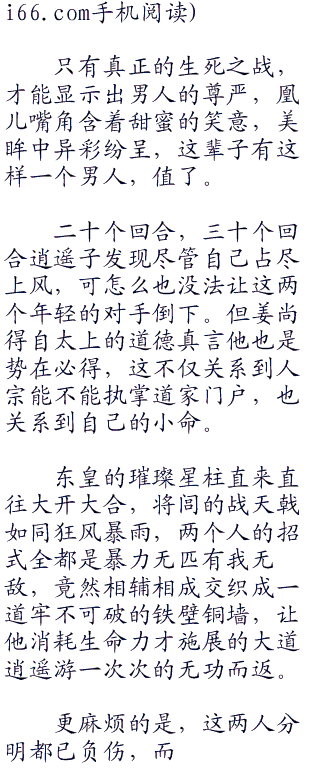 i66.com手机阅读)
只有真正的生死之战，
才能显示出男人的尊严，凰
儿嘴角含着甜蜜的笑意，美
眸中异彩纷呈，这辈子有这
样一个男人，值了。
二十个回合，三十个回
合逍遥子发现尽管自己占尽
上风，可怎么也没法让这两
个年轻的对手倒下。但姜尚
得自太上的道德真言他也是
势在必得，这不仅关系到人
宗能不能执掌道家门户，也
关系到自己的小命。
东皇的璀璨星柱直来直
往大开大合，将闾的战天戟
如同狂风暴雨，两个人的招
式全都是暴力无匹有我无
敌，竟然相辅相成交织成一
道牢不可破的铁壁铜墙，让
他消耗生命力才施展的大道
逍遥游一次次的无功而返。
更麻烦的是，这两人分
明都已负伤，而